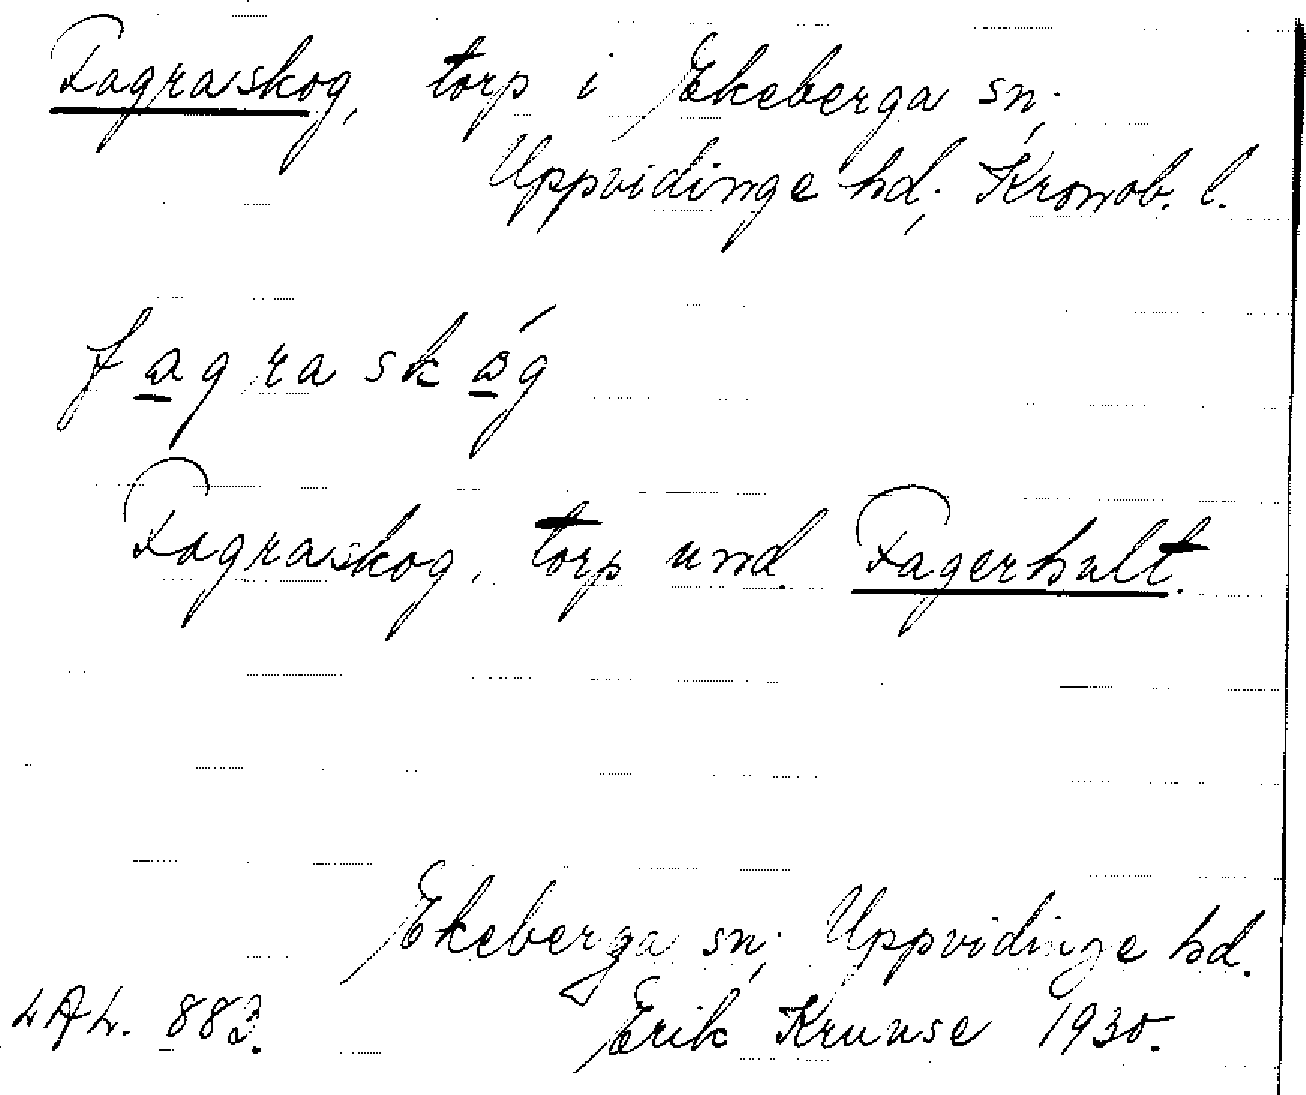 Fagraskog, torp i Ekeberga sn;
Uppvidinge hd; Kronob. l.
fagraskóg
Fagraskog, torp und. Fagerhult.
Ekeberga sn; Uppvidinge hd.
LAL. 883. Erik Kruuse 1930.